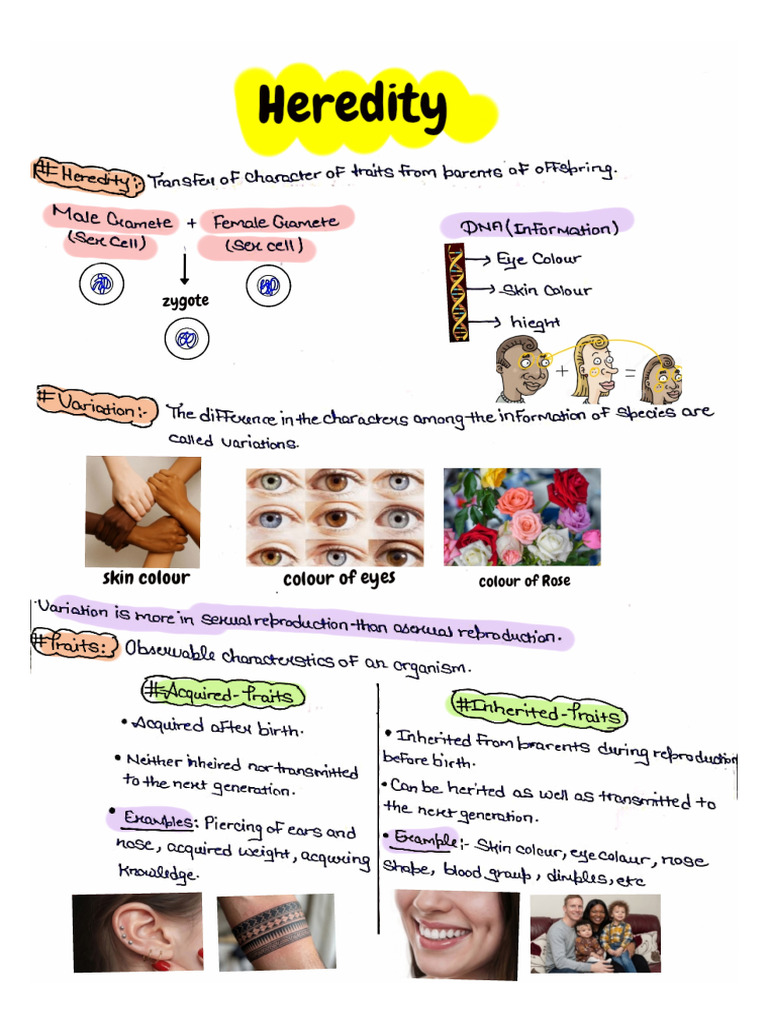 Heredity
# Heredity:- Transfer of character of traits from parents of offspring.
Male Gamete + Female Gamete
(Sex Cell) (Sex cell)
zygote
DNA (Information)
Eye Colour
Skin Colour
hieght
+ =
# Variation:- The difference in the characters among the information of species are
called variations.
skin colour colour of eyes colour of Rose
Variation is more in sexual reproduction than asexual reproduction.
# Traits: Observable characterstics of an organism.
# Acquired-Traits
• Acquired after birth.
• Neither inheired nor transmitted
to the next generation.
• Examples: Piercing of ears and
nose, acquired weight, acquring
knowledge.
# Inherited-Traits
• Inherited from parents during reproduction
before birth.
• Can be herited as well as transmitted to
the next generation.
• Example:- Skin colour, eye colour, nose
shape, blood group, dimples, etc